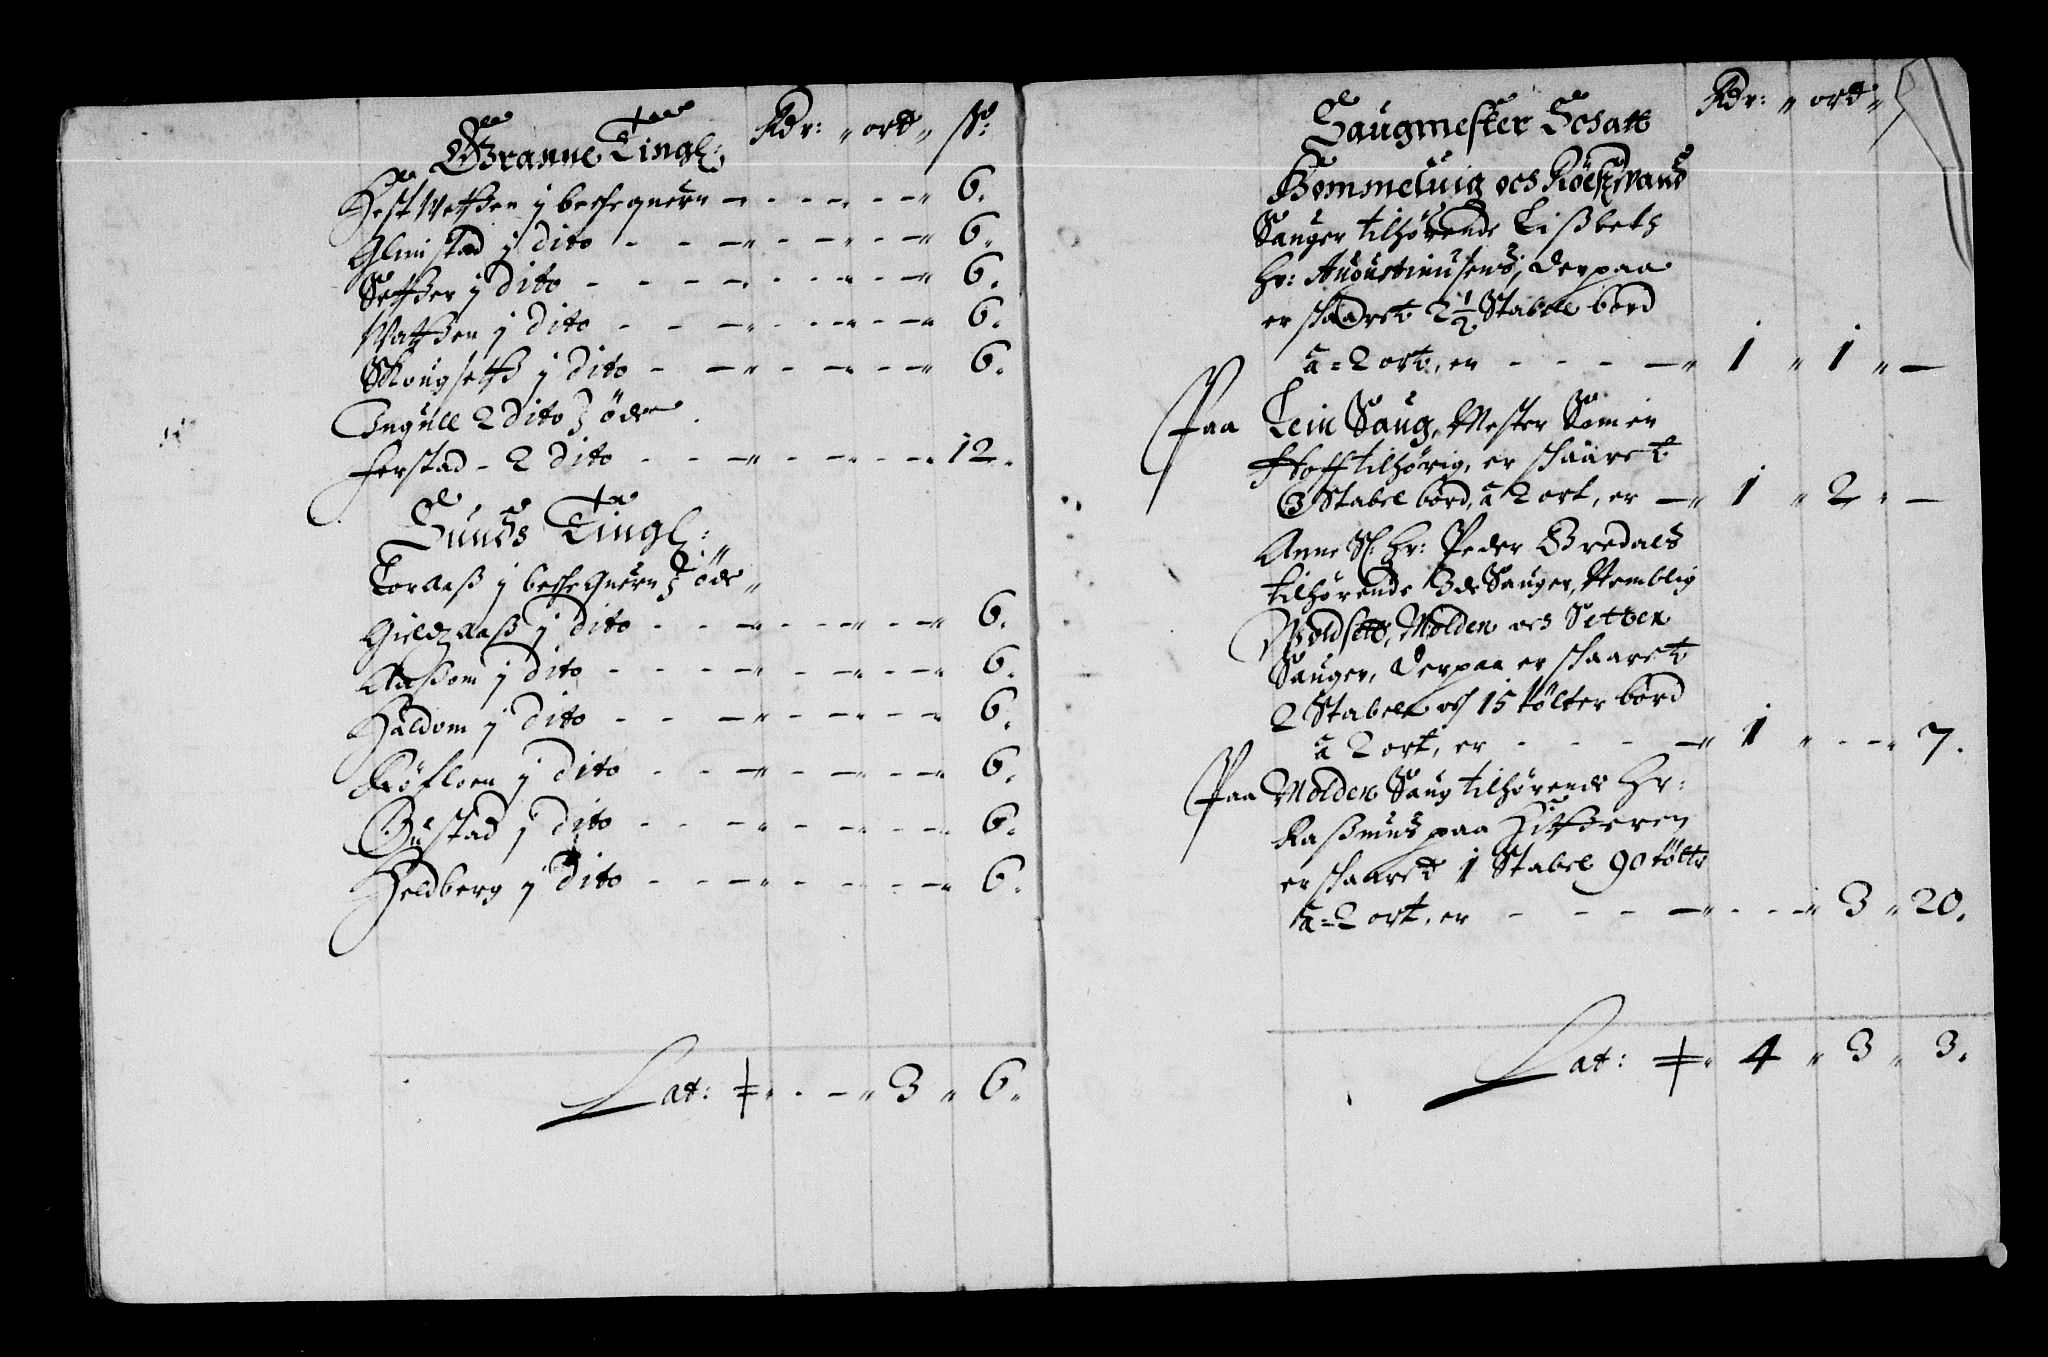 Granne Tingl: Rdr: ort ß:
HestNeßen j beche quern 6.
Glimstad j dito 6.
Setßer j dito 6.
Natßen j dito 6.
Skougsetß j dito 6.
Ingull 2 dito öde
Ferstad - 2 dito 12.
Sunds Tingl:
Toraaß j beche Quern öde
Gieldzaaß j dito 6.
Aaßom j dito 6.
Haldom j dito 6.
Röfloen j dito 6.
Gustad j dito 6.
Heldberg j dito 6.
Lat: 3 6.
Saugmester Schatt Rdr: ort
Bommeluig och Röelswand
Sauger tilhörende Lißbetz
Hr: Augustinusens, derpaa
er skaaret 2 1/2 Stabell bord
a = 2 ort, er 1 1 —
Paa Lein Saug, Mester Simen
Hoff tilhörig, er skaaret
3 Stabel bord, a 2 ort, er 1 2 —
Anne Sl: Hr: Peder Bredals
tilhörende 3de Sauger, Nemblig
Woldsett, Molden och Setten
Sauger, derpaa er skaaret
2 Stabell och 15 tölter bord
a 2 ort, er 1 7.
Paa Molden Saug tilhörende Hr:
Raßmus paa Hitßeren
er skaaret 1 Stabel 90 tölter
a = 2 ort, er 3 20.
Lat: 4 3 3.